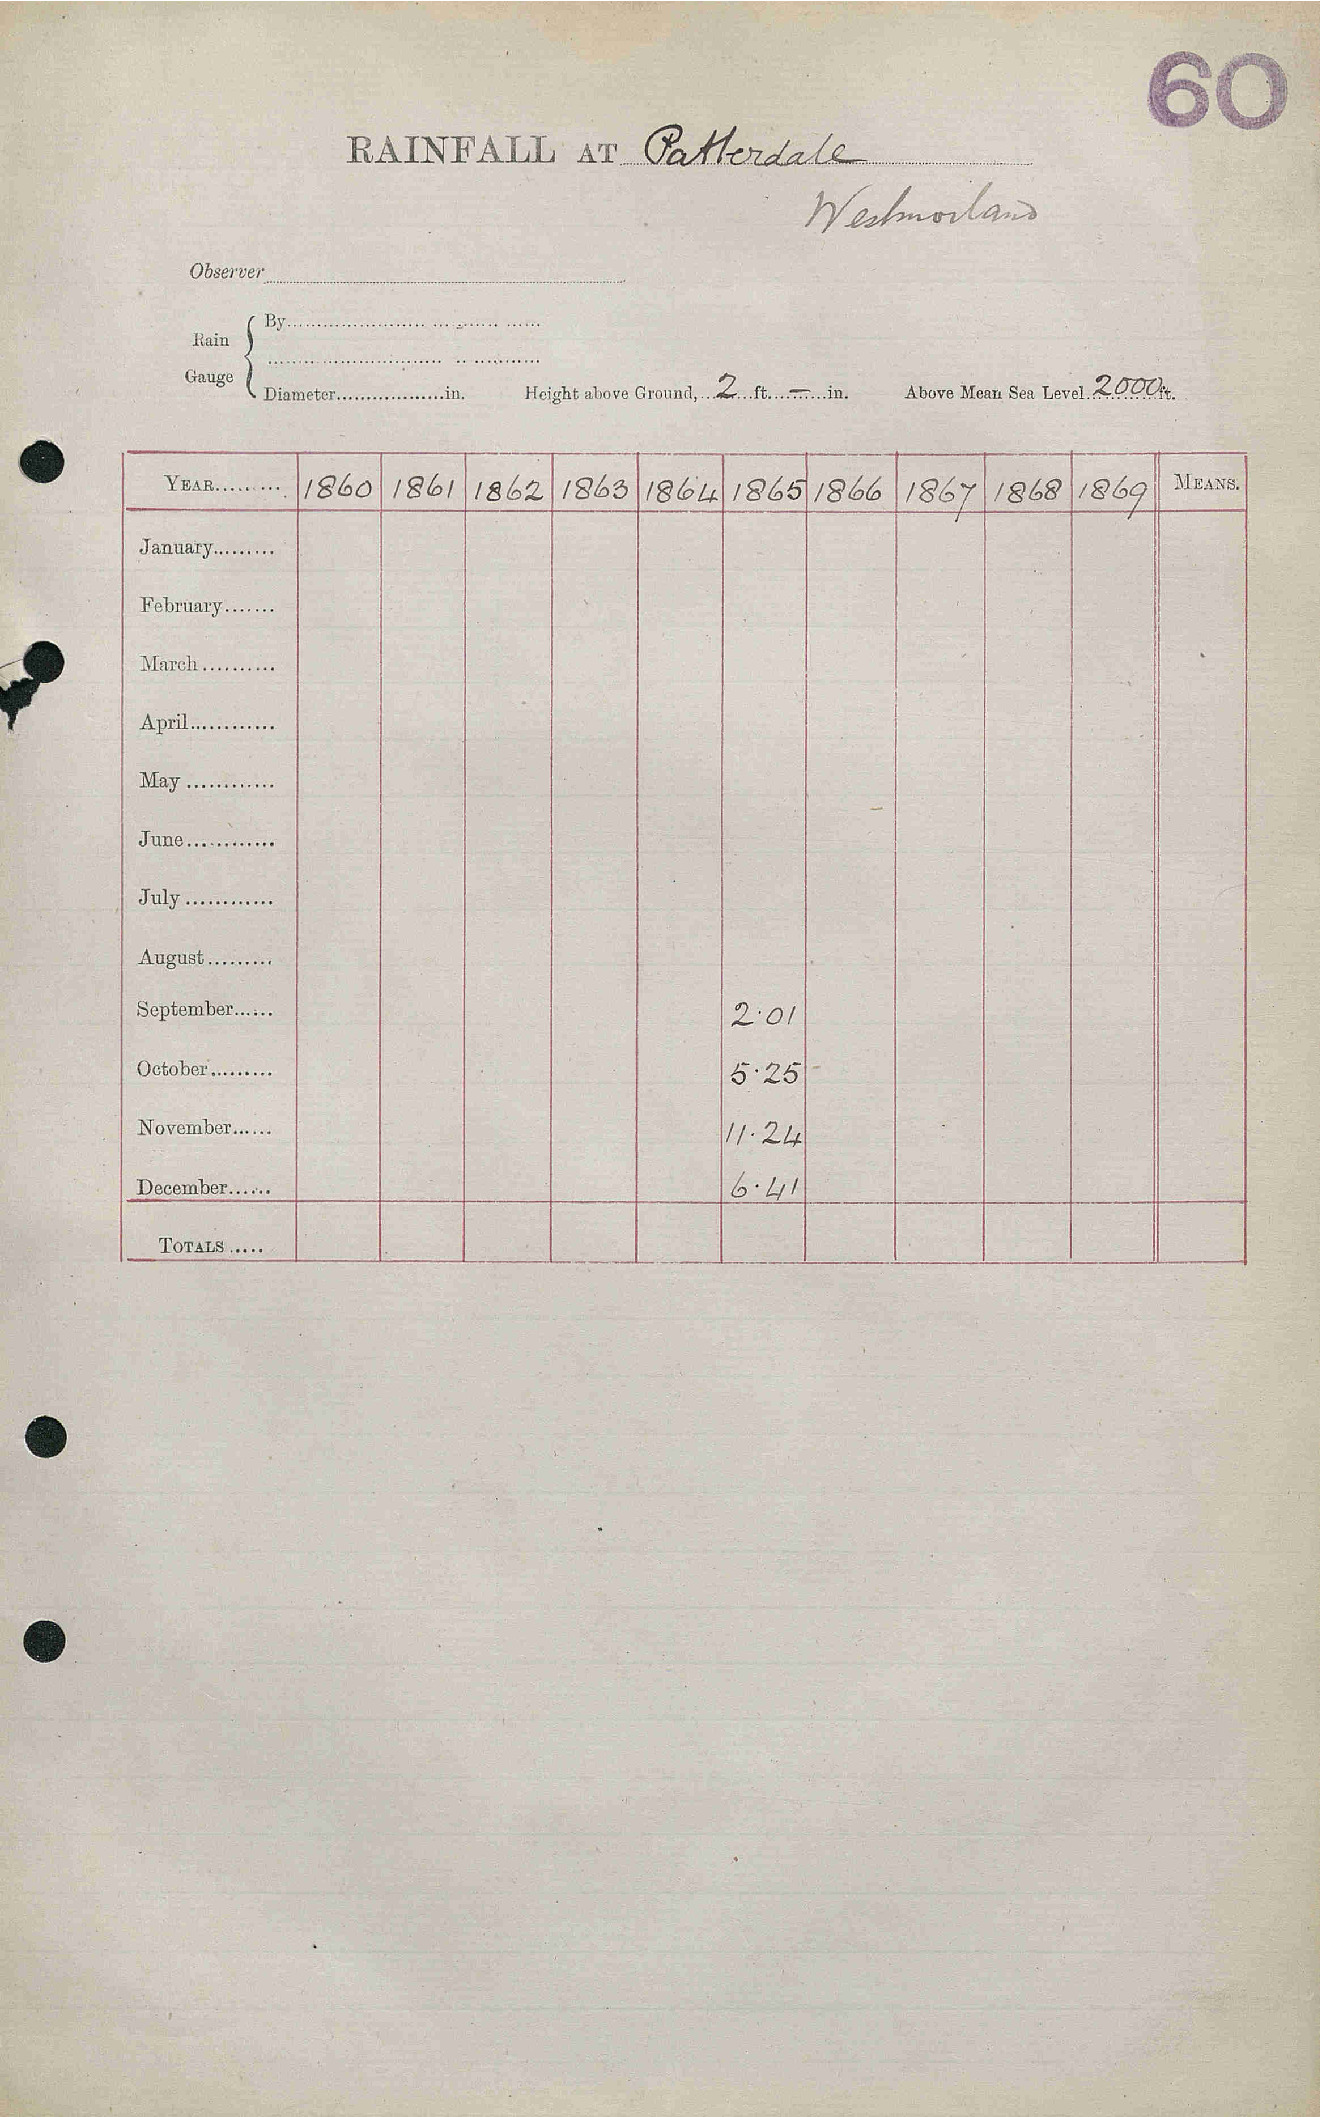 60
RAINFALL AT Patterdale
Westmorland
Observer
Rain Gauge { By
Diameter in. Height above Ground, 2 ft. — in. Above Mean Sea Level 2000 ft.
YEAR 1860 1861 1862 1863 1864 1865 1866 1867 1868 1869 MEANS.
January
February
March
April
May
June
July
August
September 2·01
October 5·25
November 11·24
December 6·41
TOTALS